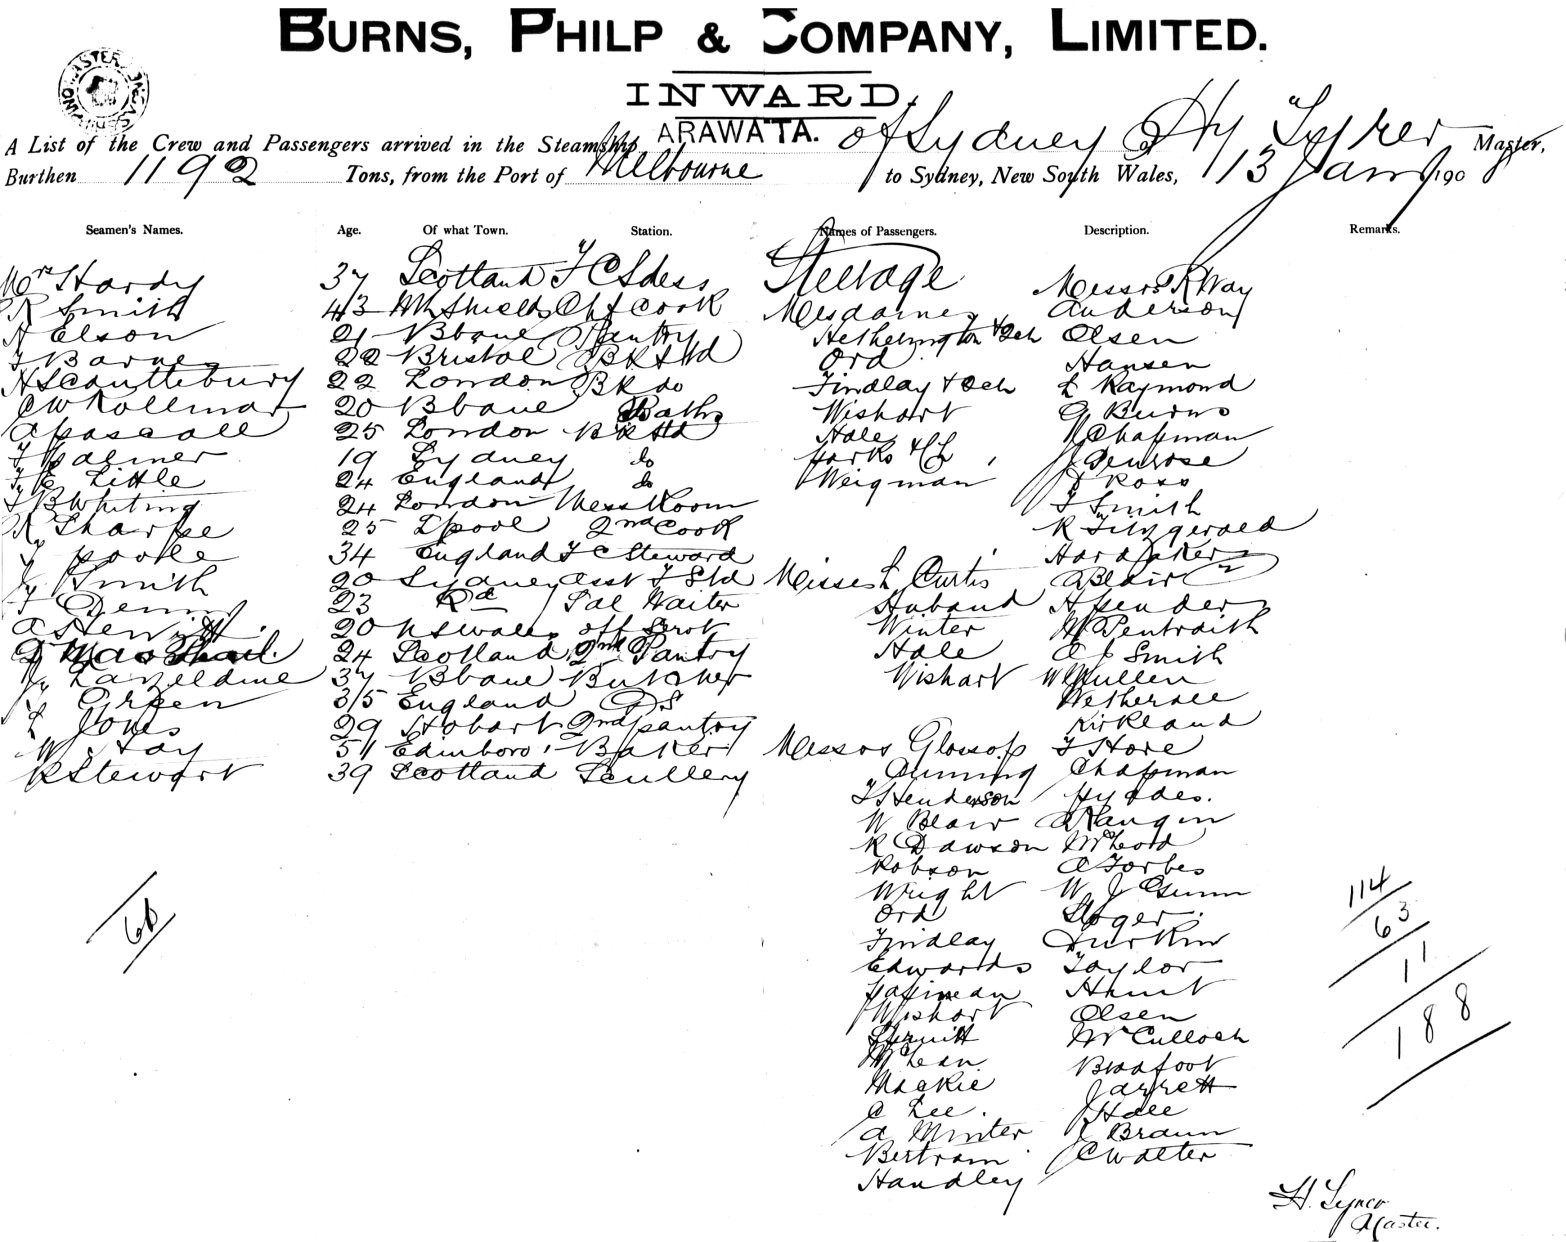 BURNS, PHILP & COMPANY, LIMITED.
INWARD.
A List of the Crew and Passengers arrived in the Steamship ARAWATA. of Sydney Hy Master,
Burthen 1192 Tons, from the Port of Melbourne to Sydney, New South Wales, 13 Jany 190
Seamen's Names. Age. Of what Town. Station. Names of Passengers. Description. Remarks.
Mrs Hardy 37 Scotland F C Stdess Steerage Messrs R Way
R Smith 43 Nth Shields Chf Cook Mesdames Anderson
N Elson 21 Bbane Pantry Hetherington & 2ch Olsen
22 Bristol BR Std Ord Hansen
22 London BR do Findlay & 2ch L Raymond
20 Bbane Baths Wishart G Burns
A Pascoall 25 London BR Std Hale Chapman
J Palmer 19 Sydney do J Penrose
Little 24 England do Weigman D Ross
B Whiting 24 London Mess Room Smith
Sharpe 25 Lpool 2nd Cook R Fitzgerald
Poole 34 England F C Steward Hardaker
Smith 20 Sydney Asst F Std Misses L Curtis A Blair
23 Do Sal Waiter Huband H Spender
20 N S Wales off Servt Winter M Pentraith
24 Scotland 2nd Pantry Hale A J Smith
Lazeldine 37 Bbane Butcher Wishart W Mullen
Green 35 England Wetherall
L Jones 29 Hobart 2nd Pantry Kirkland
W Hay 51 Edinboro' Baker Messrs Glossop F Hore
R Stewart 39 Scotland Scullery Cuming Chapman
J Henderson Hyndes.
W Blair
R Dawson McLeod
Robson A Forbes
Wright W J Gunn
Ord
Findlay Durkin
Edwards Taylor
Hunt
Wishart Olsen
McCulloch
McLean Broadfoot
Mackie Jarrett
C Lee. J Hale
A Minter J Braun
Bertram C Walter
Handley
114
63
11
188
H.
Master.